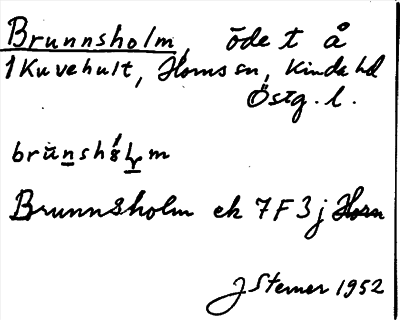 Brunnsholm, öde t å
1 Kuvehult, Horns sn, Kinda hd
Östg. l.
brùnshólm
Brunnsholm ek 7F3j Horn
J Sterner 1952